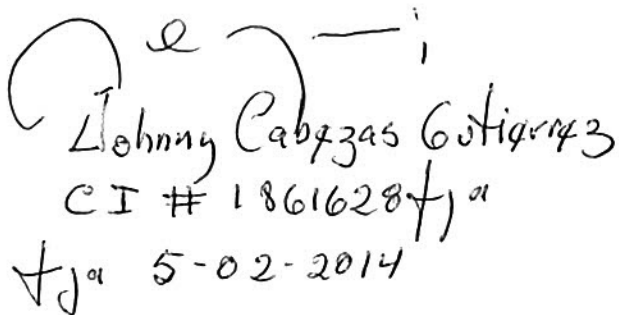 Johnny Cabezas Gutierrez
CI # 1861628 tja
tja 5-02-2014